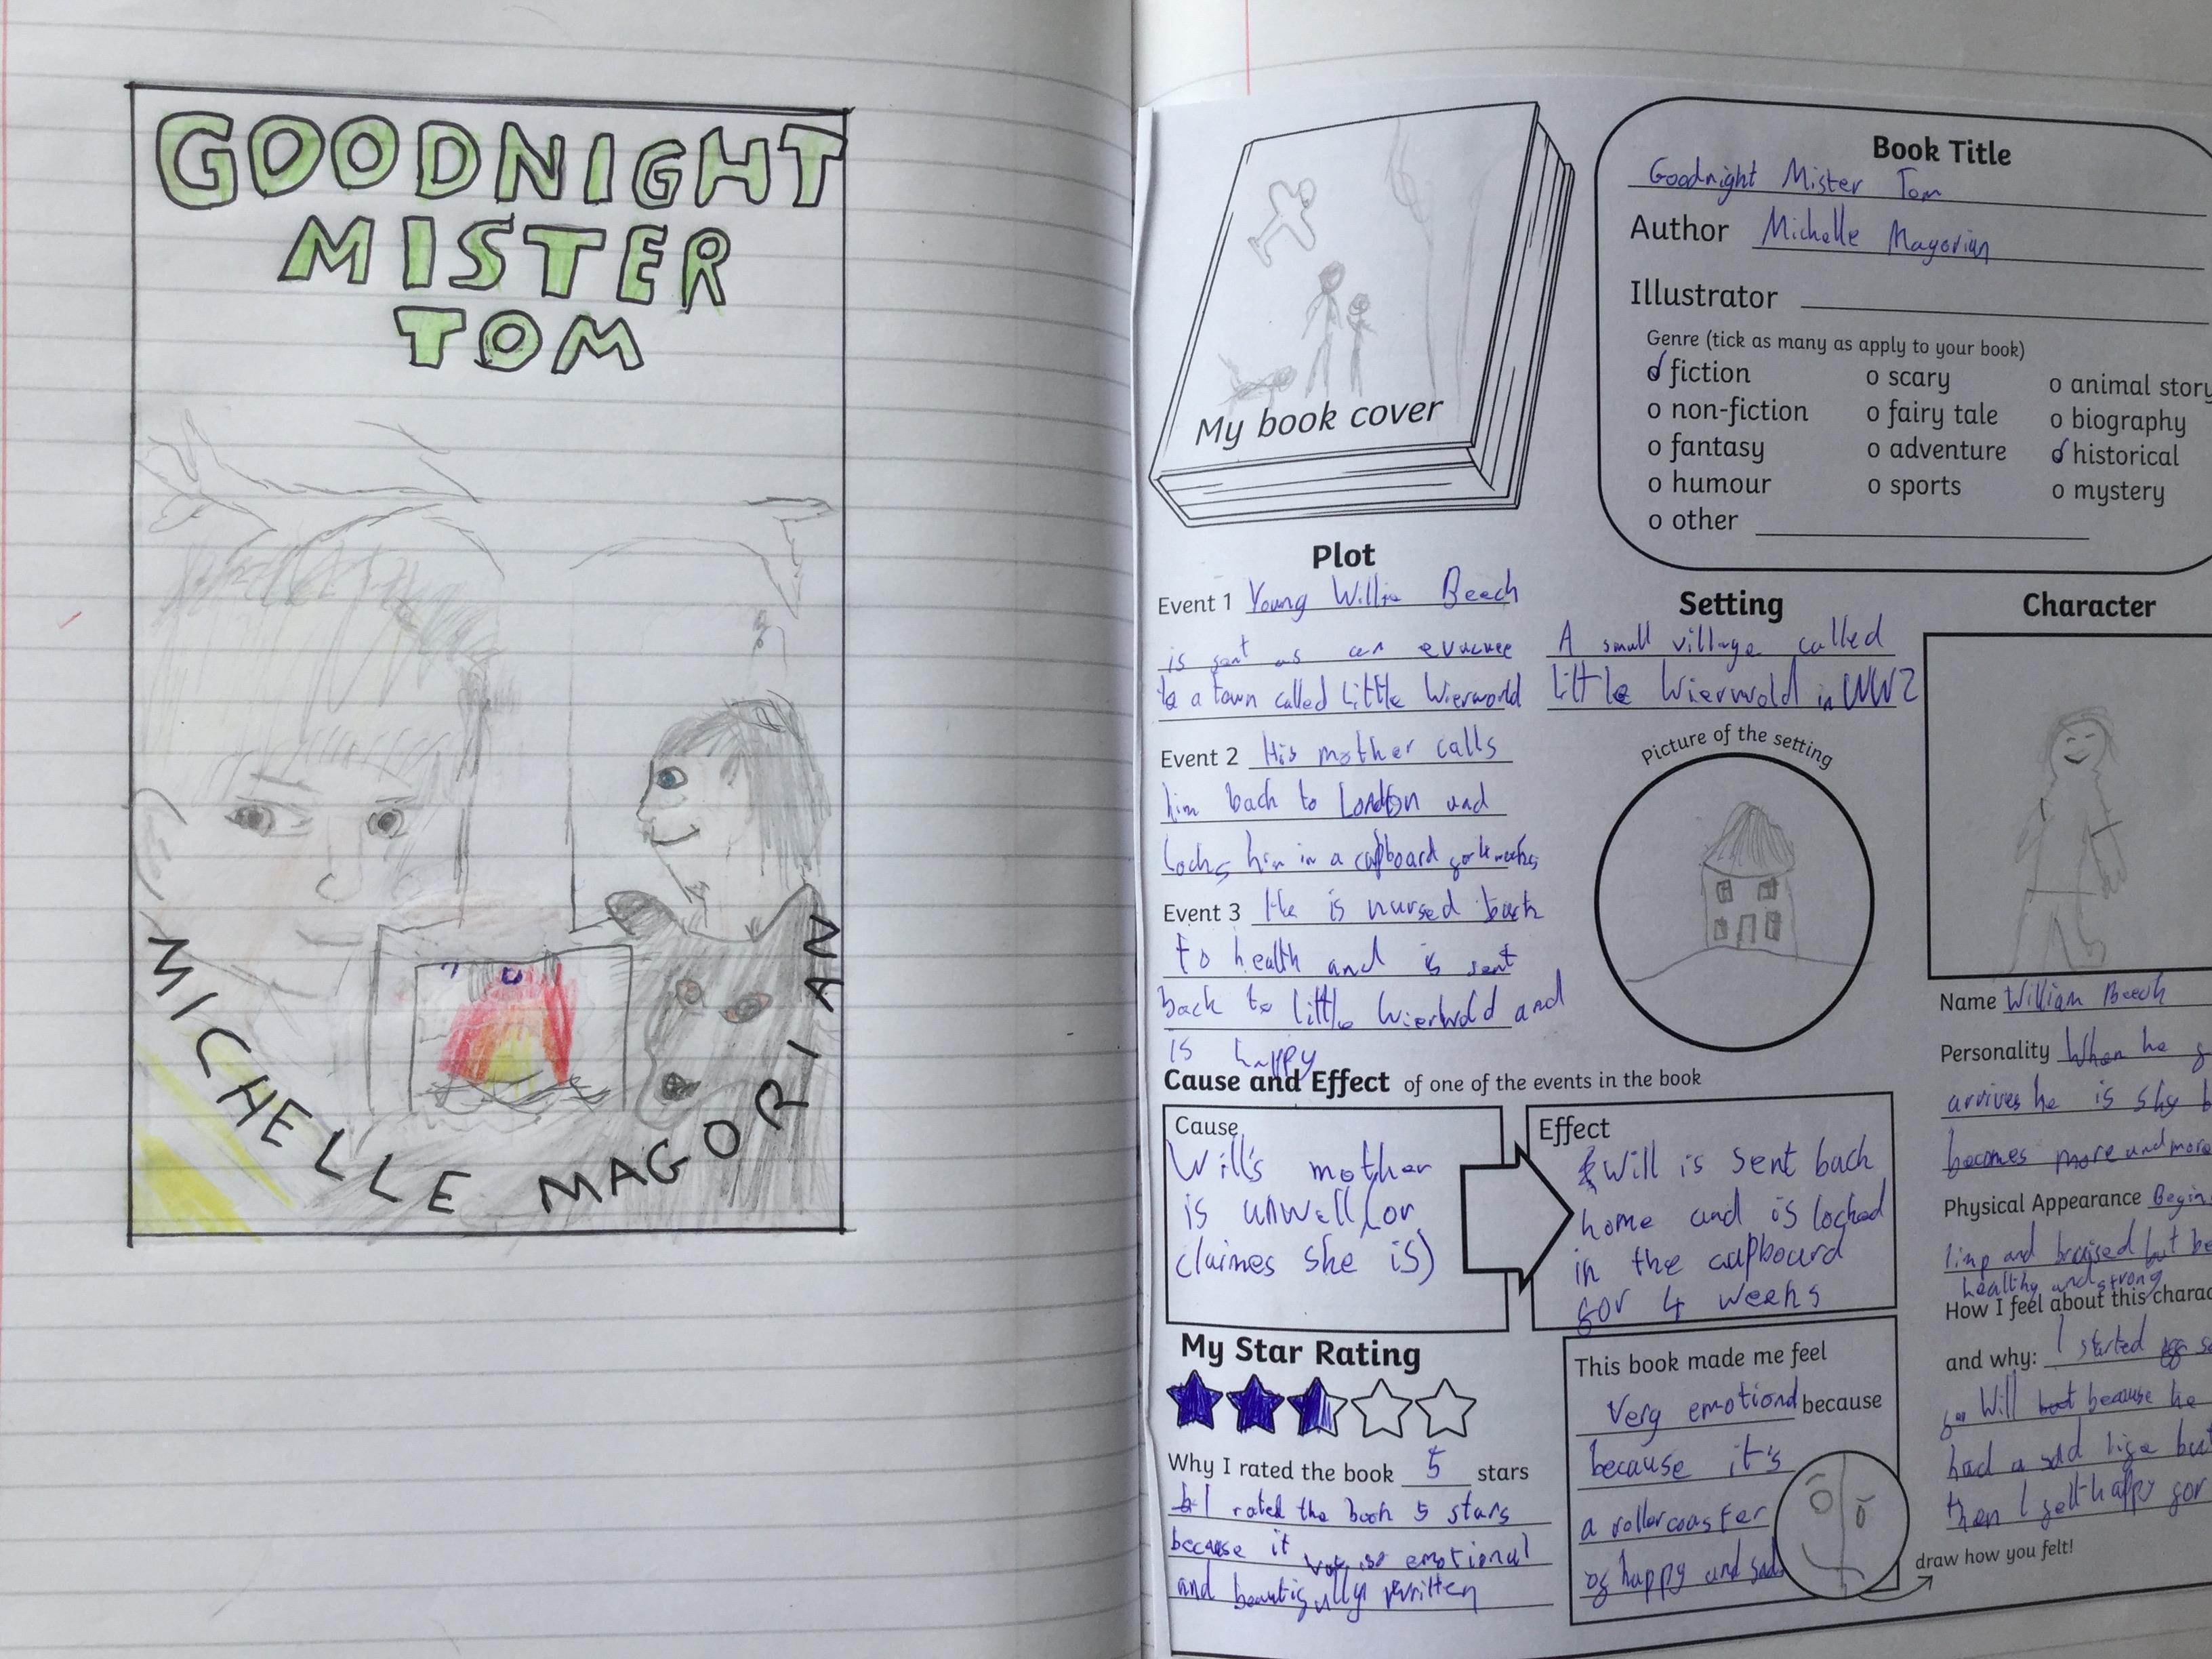 GOODNIGHT
MISTER
TOM
MICHELLE MAGORIAN
My book cover
Book Title
Goodnight Mister Tom
Author Michelle Magorian
Illustrator
Genre (tick as many as apply to your book)
fiction
o non-fiction
o fantasy
o humour
o other
o scary
o fairy tale
o adventure
o sports
o animal story
o biography
historical
o mystery
Plot
Event 1 Young Willie Beech
is sent as an evacuee
to a town called Little Wierworld
Event 2 His mother calls
him back to London and
locks him in a cupboard for 4 weeks
Event 3 He is nursed back
to health and is sent
back to little Wierwold and
is happy
Setting
A small village called
Little Wierwold in WW2
Picture of the setting
Character
Name William Beech
Personality When he
arrives he is shy
becomes more and more
Physical Appearance Begin
limp and bruised but
healthy and strong
How I feel about this charac
and why: I started
for Will because he
had a sad life but
then I felt happy for
Cause and Effect of one of the events in the book
Cause
Will's mother
is unwell (or
claimes she is)
Effect
Will is sent back
home and is locked
in the cupboard
for 4 weeks
My Star Rating
Why I rated the book 5 stars
I rated the book 5 stars
because it was so emotional
and beautifully written
This book made me feel
Very emotional because
because it's
a rollercoaster
of happy and sad
draw how you felt!